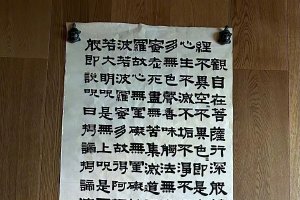 般若波羅蜜多心經
觀自在菩薩行深般
不異空不異色即是
生不滅不垢不淨不
無色聲香味觸法無
死盡無苦集滅道
心無罣礙無罣礙故
若波羅蜜多故得阿
大明呪是無上呪
即說呪曰揭諦